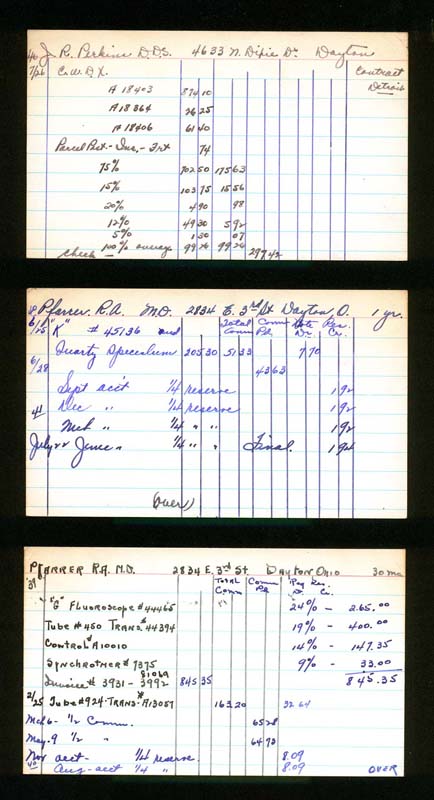 46 J. R. Perkins D.D.S. 4633 N. Dixie Dr. Dayton
7/26 C.W.D.X. Contract
Detroit
A 18403 874 10
A18364 26 25
A 18406 61 40
Parcel Post - Ins. - Frt 74
75% 702 50 175 63
15% 103 75 15 56
20% 4 90 98
12% 49 30 5 92
5% 1 50 07
100% overage 99 26 99 26
Check 297 42
Pfarrer. R.A. M.D. 2834 E. 3rd St Dayton, O. 1 yr.
6/15 "K" # 45136 and Total Comm Comm Pd Note Dr. Res. Cr.
Quartz Speculum 205 30 51 33 7 70
6/28 43 63
Sept acct 1/4 reserve 1 92
41 Dec " 1/4 reserve 1 92
Mch " 1/4 " " 1 92
July 22 June " 1/4 " " Final. 1 94
(over)
PFARRER R.A. M.D. 2834 E. 3rd St. DAYTON OHIO 30 mo
39 TOTAL Comm Comm Pd Res. Cr.
"G" FLUOROSCOPE # 44465 24% - 265.00
TUBE #450 TRANS # 44394 19% - 400.00
CONTROL # A10010 14% - 147.35
SYNCHROTMER # 7375 9% - 33.00
81069
Invoice # 3931 - 3992 845 35 845.35
2/25 TUBE #924 - TRANS - # A13057 163.20 32 64
Mch 6 - 1/2 Comm. 65 28
May. 9 1/2 " 64 73
Nov acct - 1/4 reserve. 8.09
40 Aug - acct 1/4 " 8.09 OVER